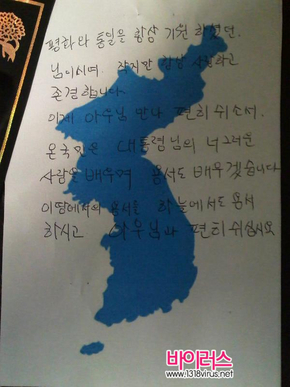 평화와 통일을 항상 기원 하셨던.
님이시여. 작지만 항상 사랑하고
존경합니다
이제 아우님 만나 편히 쉬소서.
온국민은 대통령님의 너그러운
사랑을 배우며 용서도 배우겠습니다
이땅에서의 용서를 하늘에서도 용서
하시고 아우님과 편히 쉬십시요
바이러스
www.1318virus.net